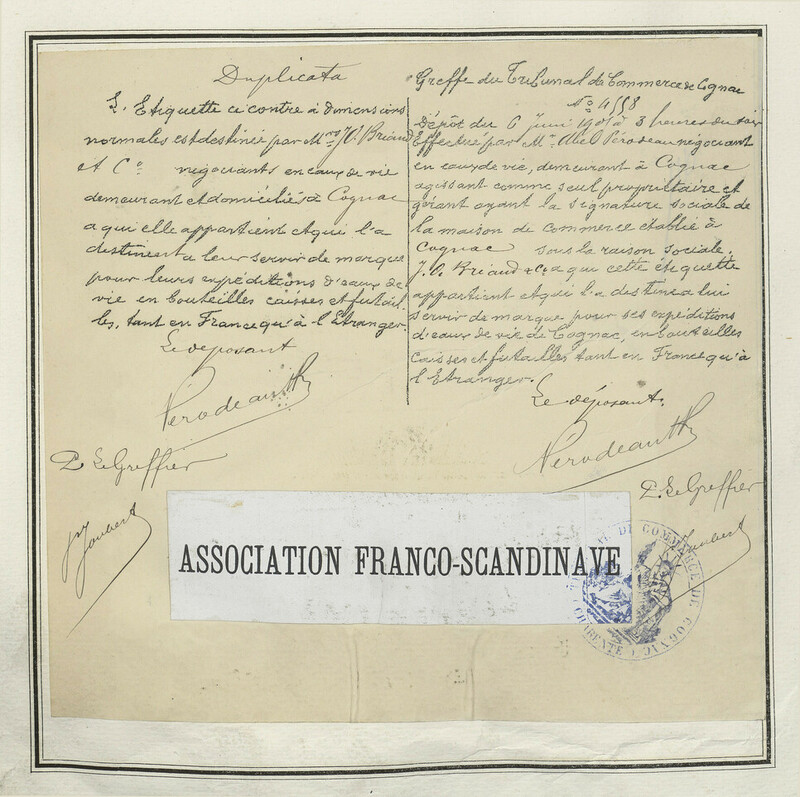 Duplicata
L'Etiquette ci contre à dimensions
normales est destinée par Mrs J. O. Briand
et Co négociants en eaux de vie
demeurant et domiciliés à Cognac
a qui elle appartient et qui l'a
destinent a leur servir de marque
pour leurs expéditions d'eaux de
vie en bouteilles caisses et futail-
les, tant en France qu'à l'Etranger.
Le déposant
P. Le Greffier
Joubert
Greffe du Tribunal de Commerce de Cognac
No 4558
Dépôt du 6 Juin à 3 heures du soir
Effectué par Mr. Abel négociant
en eaux de vie, demeurant à Cognac
agissant comme seul propriétaire et
gérant ayant la signature sociale de
la maison de commerce établie à
Cognac sous la raison sociale.
J. O. Briand & Co a qui cette étiquette
appartient et qui l'a destine a lui
servir de marque pour ses expéditions
d'eaux de vie de Cognac, en bouteilles
caisses et futailles tant en France qu'à
l'Etranger.
Le déposant.
P. Le Greffier
Joubert
ASSOCIATION FRANCO-SCANDINAVE
DE COMMERCE DE COGNAC
CHARENTE